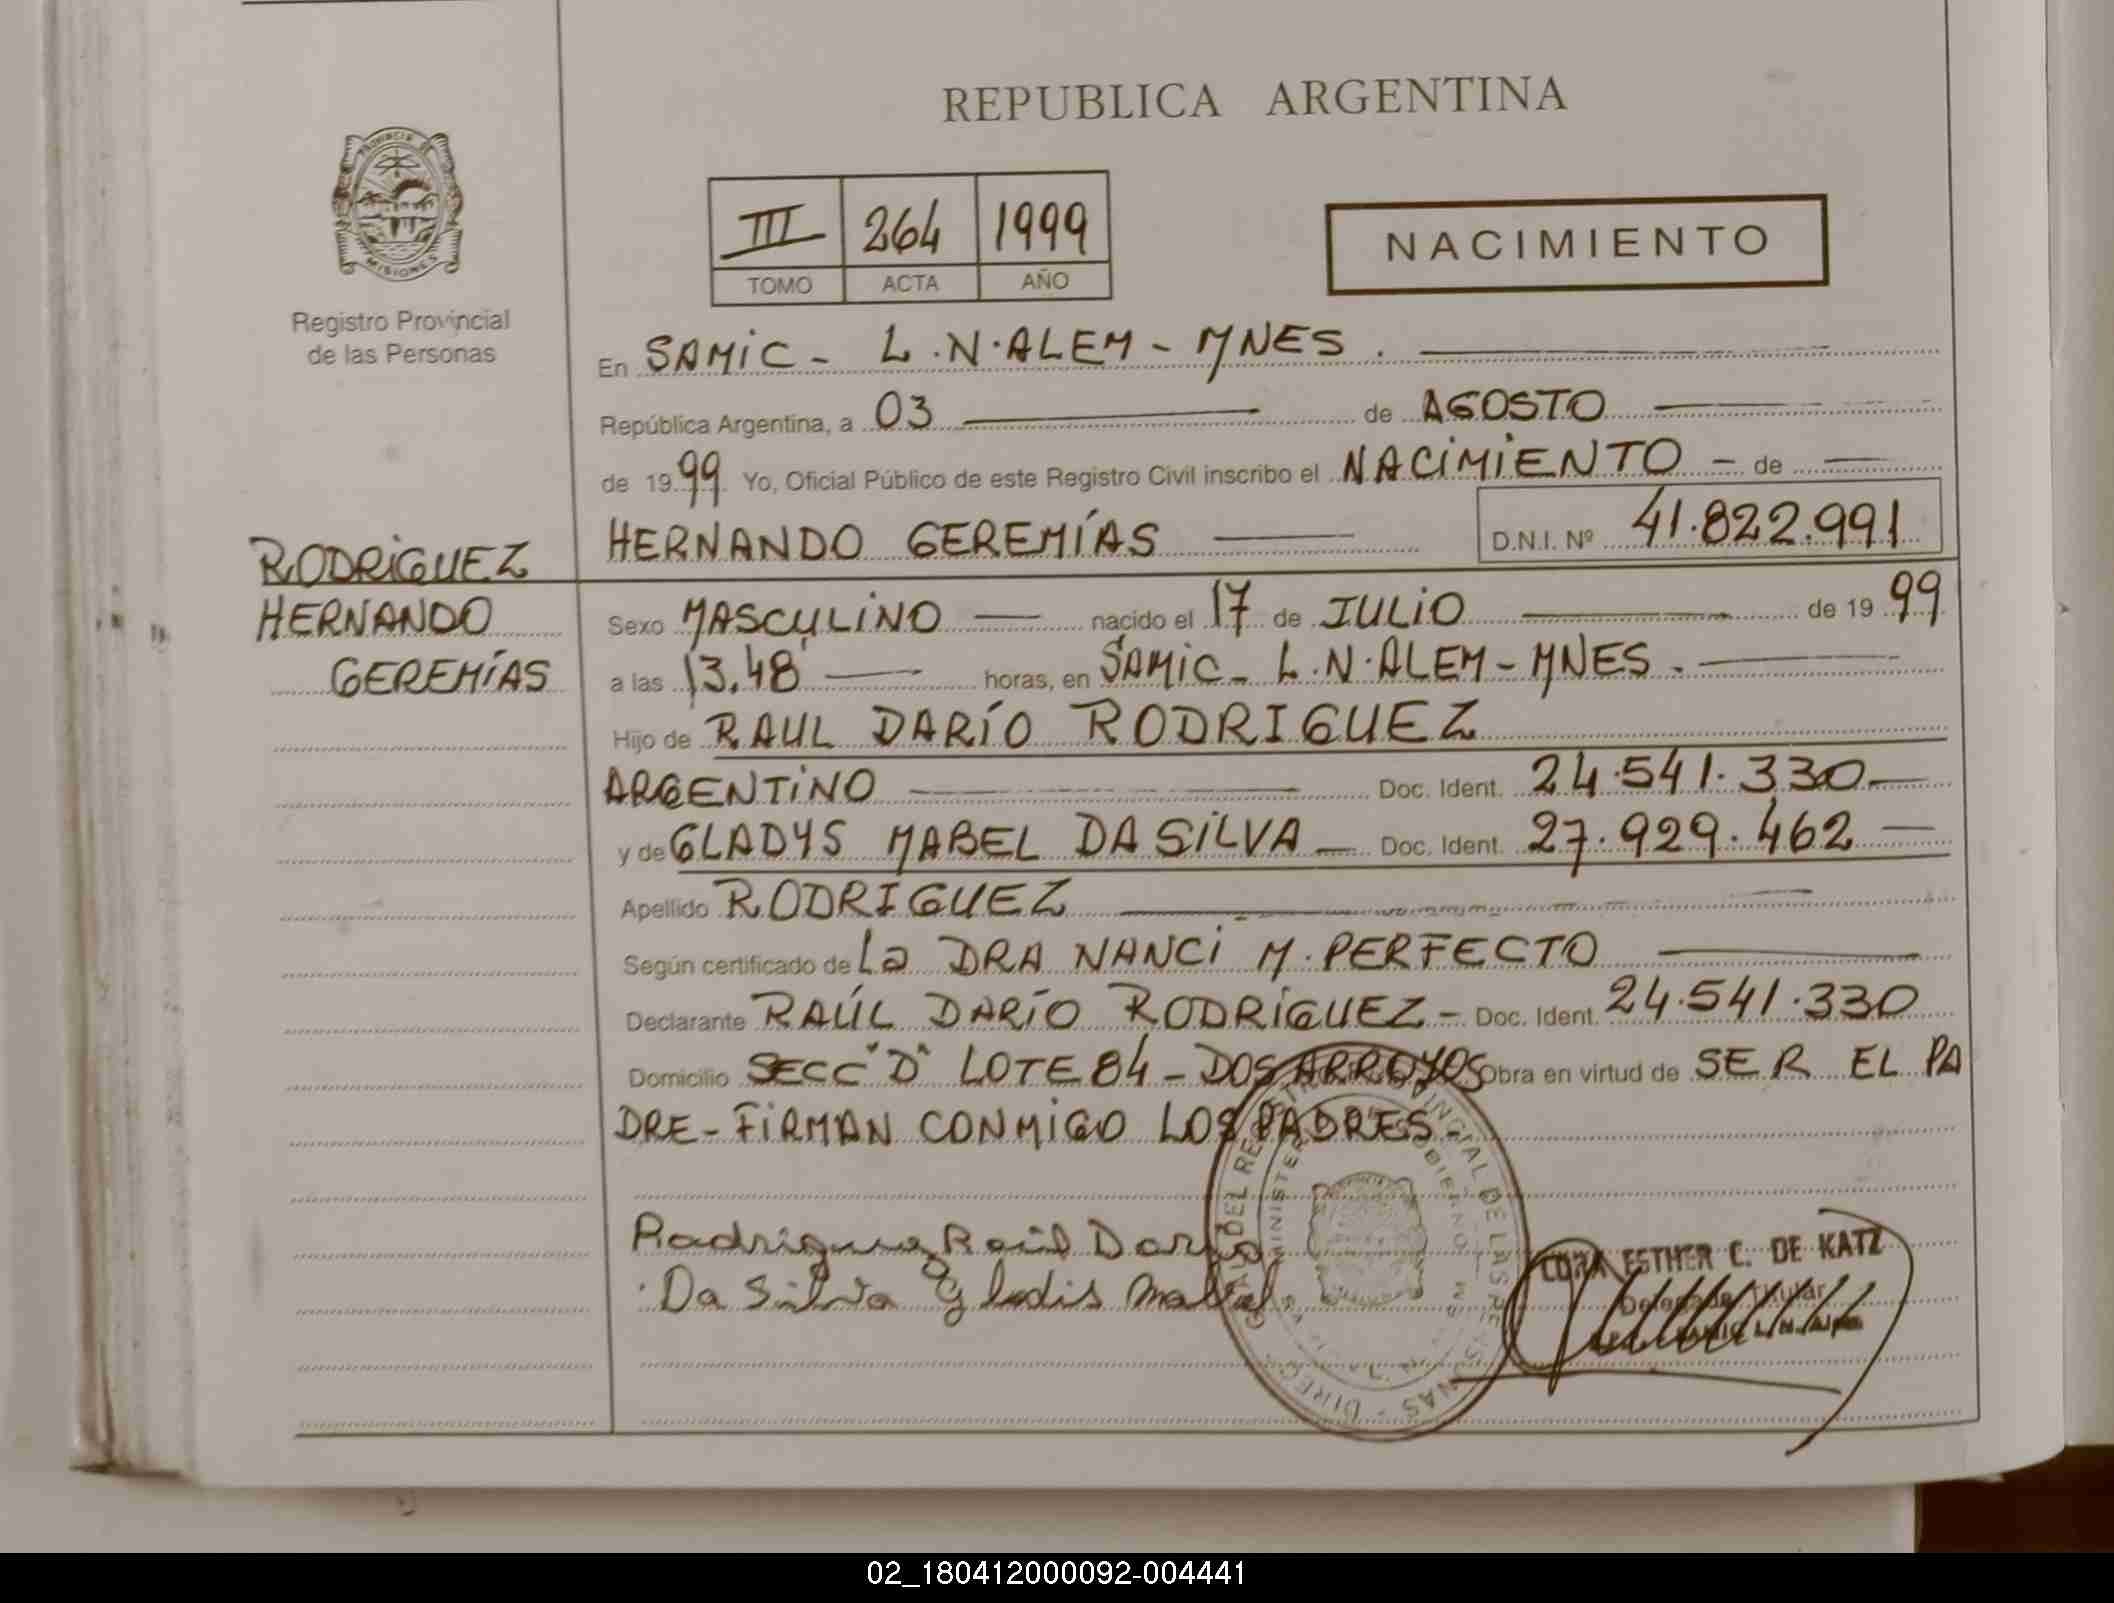 REPUBLICA ARGENTINA
PROVINCIA DE
MISIONES
Registro Provincial
de las Personas
III 264 1999
TOMO ACTA AÑO
NACIMIENTO
En SAMIC - L.N.ALEM - MNES.
República Argentina, a 03 de AGOSTO
de 1999 Yo, Oficial Público de este Registro Civil inscribo el NACIMIENTO - de
HERNANDO GEREMÍAS D.N.I. Nº 41.822.991
RODRIGUEZ
HERNANDO
GEREMÍAS
Sexo MASCULINO nacido el 17 de JULIO de 1999
a las 13.48' horas, en SAMIC - L.N.ALEM - MNES.
Hijo de RAUL DARÍO RODRIGUEZ
ARGENTINO Doc. Ident. 24.541.330
y de GLADYS MABEL DA SILVA Doc. Ident. 27.929.462
Apellido RODRIGUEZ
Según certificado de La DRA NANCI M. PERFECTO
Declarante RAÚL DARÍO RODRÍGUEZ - Doc. Ident. 24.541.330
Domicilio SECC "D" LOTE 84 - DOS ARROYOS Obra en virtud de SER EL PA
DRE - FIRMAN CONMIGO LOS PADRES -
Rodriguez Raúl Dario
Da Silva Gladis Mabel
ESTHER C. DE KATZ
Delegada Titular
02_180412000092-004441